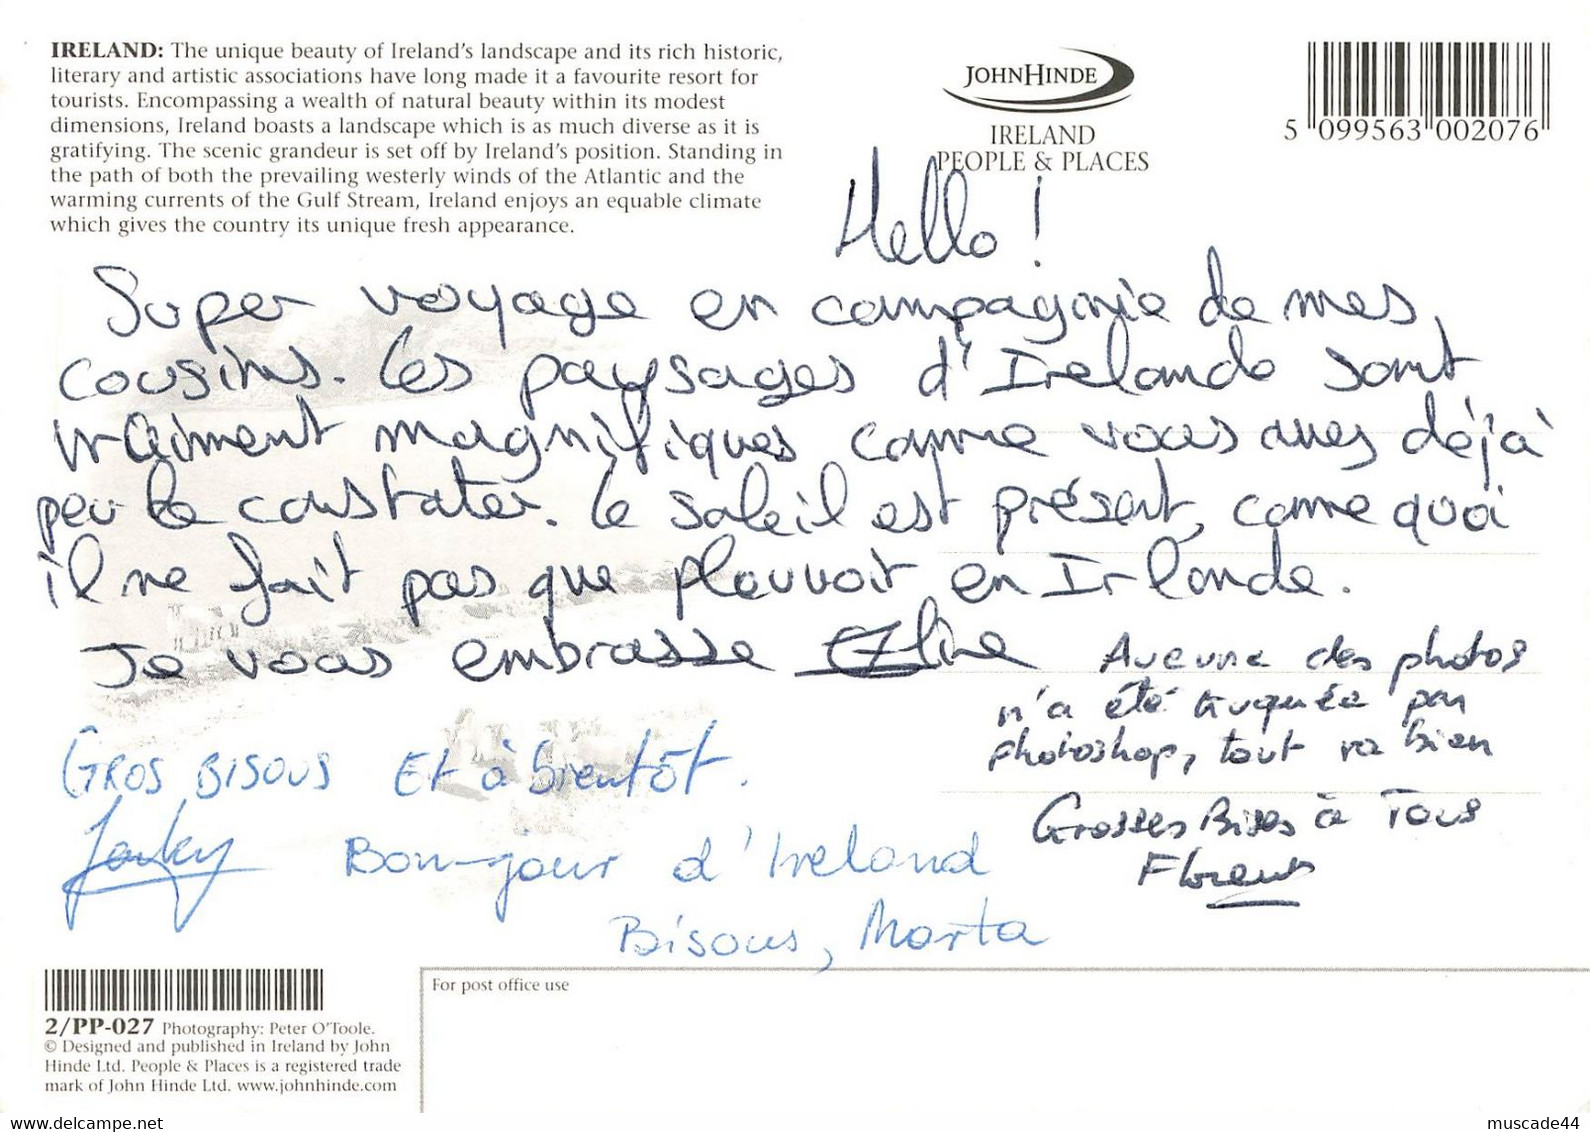 IRELAND: The unique beauty of Ireland's landscape and its rich historic,
literary and artistic associations have long made it a favourite resort for
tourists. Encompassing a wealth of natural beauty within its modest
dimensions, Ireland boasts a landscape which is as much diverse as it is
gratifying. The scenic grandeur is set off by Ireland's position. Standing in
the path of both the prevailing westerly winds of the Atlantic and the
warming currents of the Gulf Stream, Ireland enjoys an equable climate
which gives the country its unique fresh appearance.
JOHNHINDE
IRELAND
PEOPLE & PLACES
5 099563 002076
Hello !
Super voyage en compagnie de mes
cousins. Les paysages d'Irelande sont
vraiment magnifiques comme vous avez déjà
peu le constater. Le soleil est présent, comme quoi
il ne fait pas que pleuvoir en Irlande.
Je vous embrasse
Aucune des photos
n'a été truquée par
photoshop, tout va bien
Grosses Bises à Tous
Florent
GROS BISOUS Et à bientôt.
Jacky
Bon-jour d'Ireland
Bisous, Marta
2/PP-027 Photography: Peter O'Toole.
© Designed and published in Ireland by John
Hinde Ltd. People & Places is a registered trade
mark of John Hinde Ltd. www.johnhinde.com
For post office use
www.delcampe.net
muscade44